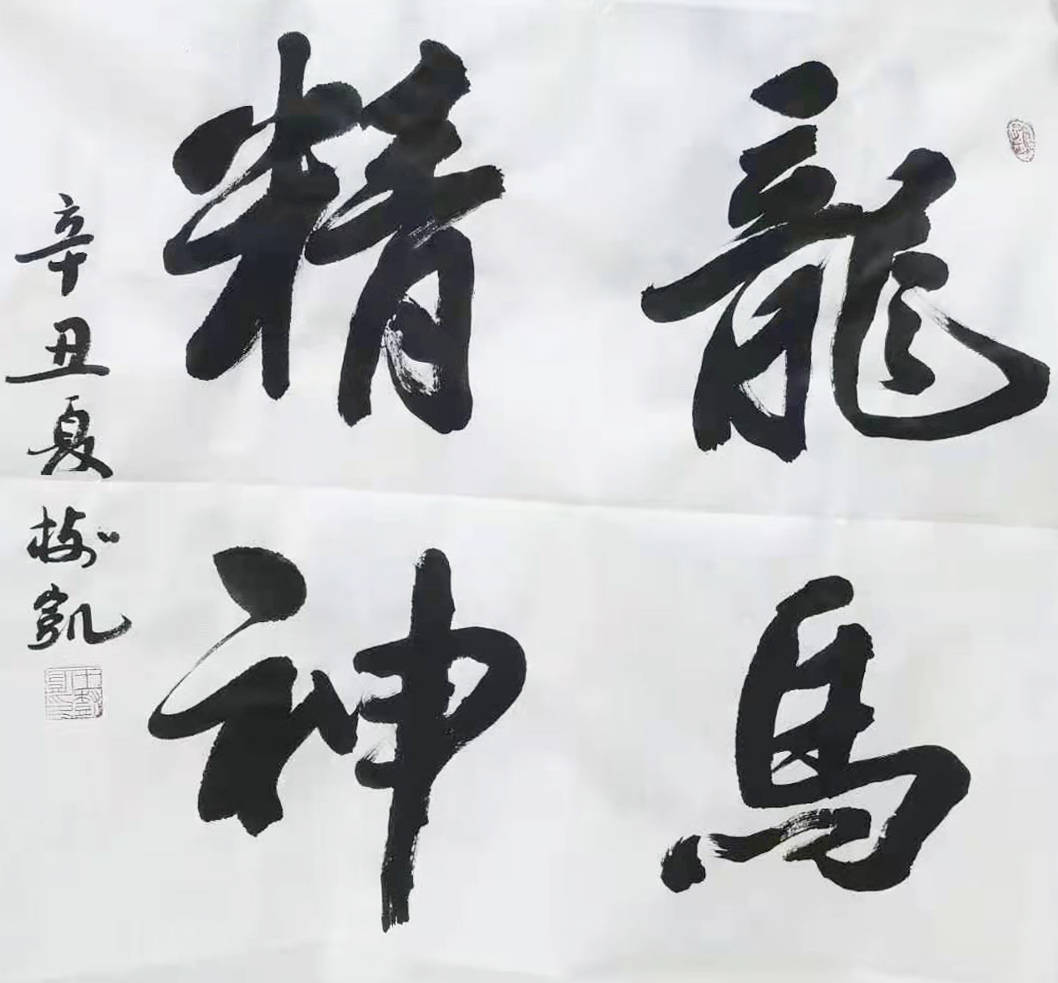 龍馬
精神
辛丑夏樹凱